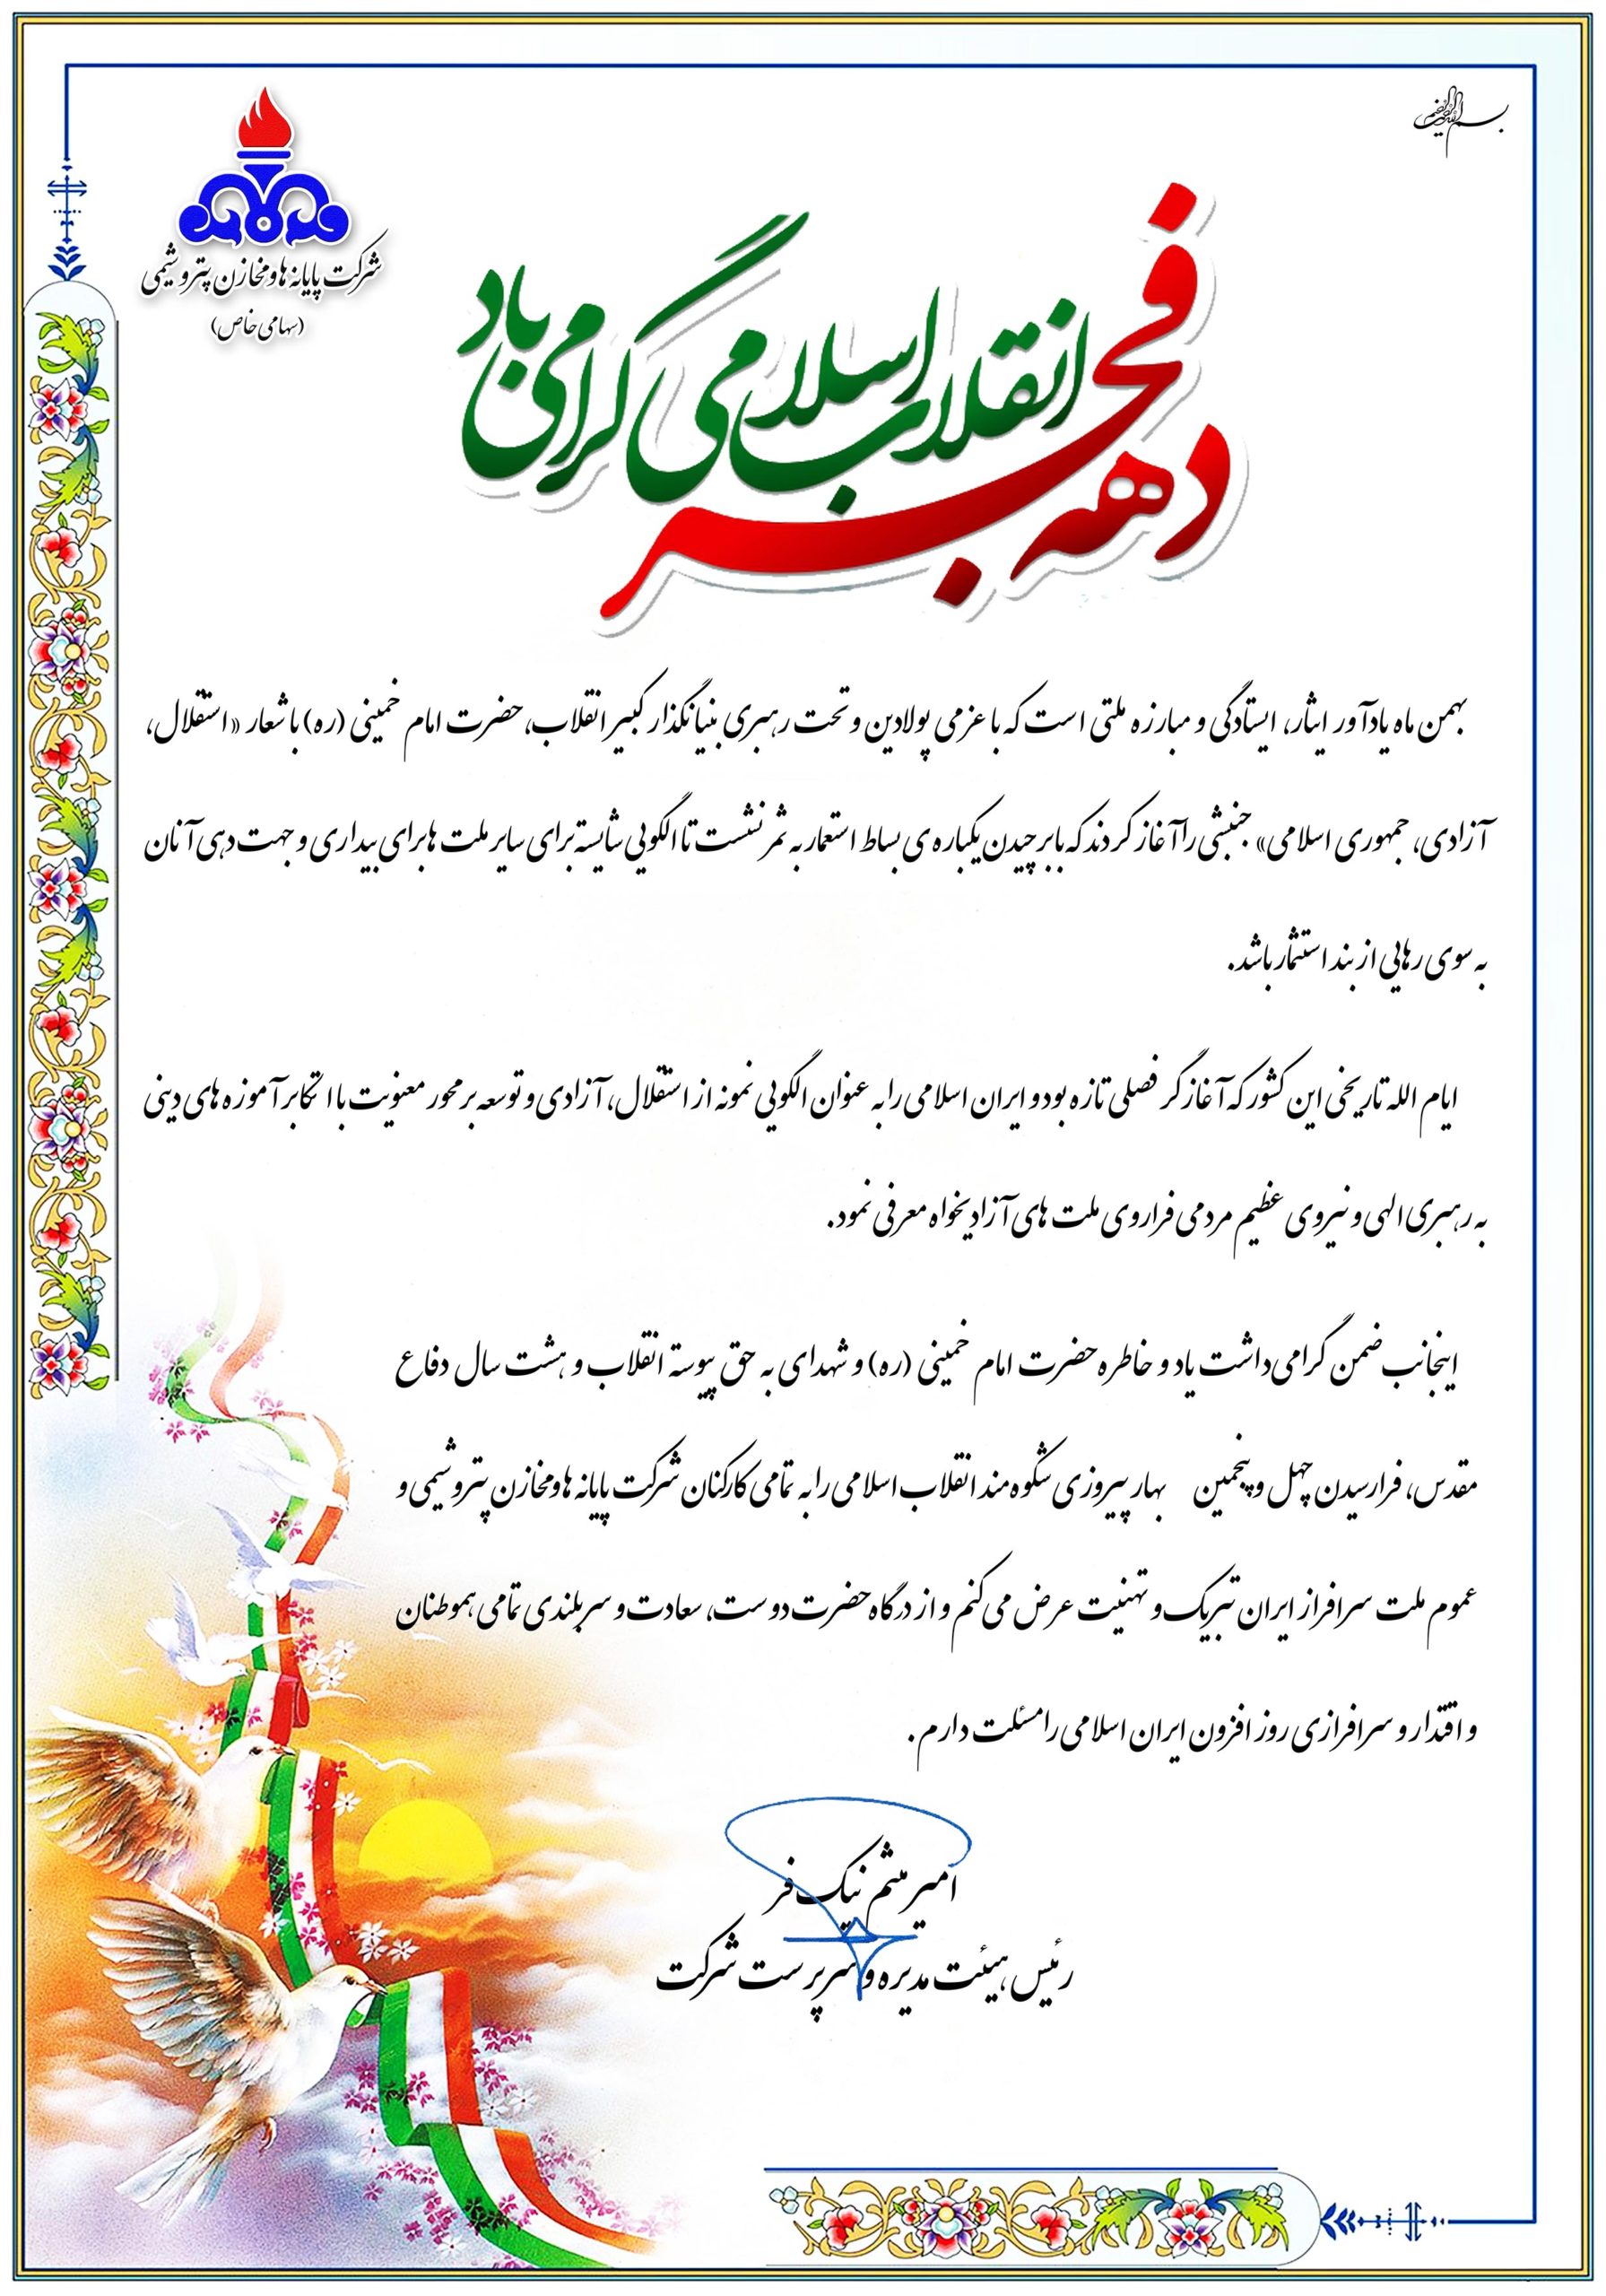 بسم الله الرحمن الرحیم
شرکت پایانه ها و مخازن پتروشیمی
(سهامی خاص)
دهه فجر انقلاب اسلامی گرامی باد
بهمن ماه یادآور ایثار، ایستادگی و مبارزه ملتی است که با عزمی پولادین و تحت رهبری بنیانگذار کبیر انقلاب، حضرت امام خمینی (ره) با شعار «استقلال،
آزادی، جمهوری اسلامی» جنبشی را آغاز کردند که با برچیدن یکباره ی بساط استعمار به ثمر نشست تا الگویی شایسته برای سایر ملت ها برای بیداری و جهت دهی آنان
به سوی رهایی از بند استثمار باشد.
ایام الله تاریخی این کشور که آغازگر فصلی تازه بود و ایران اسلامی را به عنوان الگویی نمونه از استقلال، آزادی و توسعه بر محور معنویت با اتکا بر آموزه های دینی
به رهبری الهی و نیروی عظیم مردمی فراروی ملت های آزادیخواه معرفی نمود.
اینجانب ضمن گرامی داشت یاد و خاطره حضرت امام خمینی (ره) و شهدای به حق پیوسته انقلاب و هشت سال دفاع
مقدس، فرارسیدن چهل و پنجمین بهار پیروزی شکوه مند انقلاب اسلامی را به تمامی کارکنان شرکت پایانه ها و مخازن پتروشیمی و
عموم ملت سرافراز ایران تبریک و تهنیت عرض می کنم و از درگاه حضرت دوست، سعادت و سربلندی تمامی هموطنان
و اقتدار و سرافرازی روز افزون ایران اسلامی را مسئلت دارم.
امیر میثم نیک فر
رئیس هیئت مدیره و سرپرست شرکت